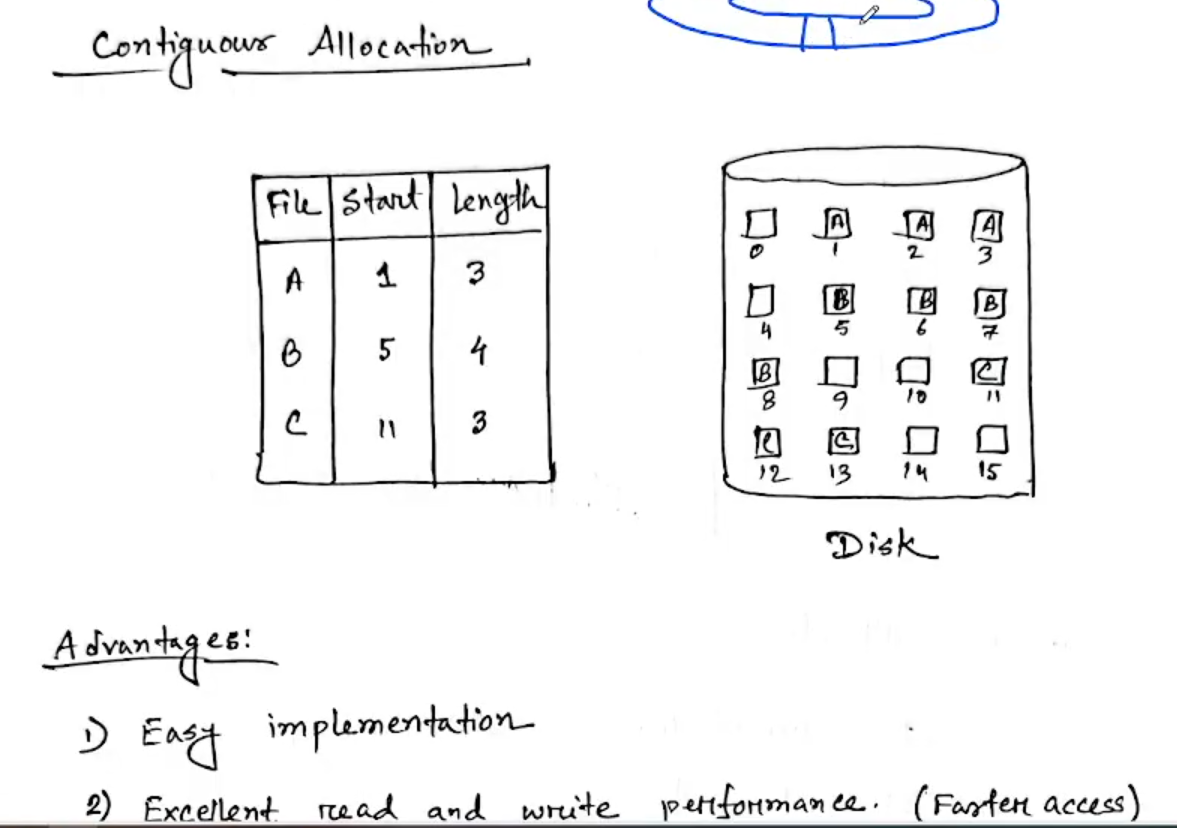 Contiguous Allocation
File Start Length
A 1 3
B 5 4
C 11 3
A A A
0 1 2 3
B B B
4 5 6 7
B C
8 9 10 11
C C
12 13 14 15
Disk
Advantages:
1) Easy implementation
2) Excellent read and write performance. (Faster access)